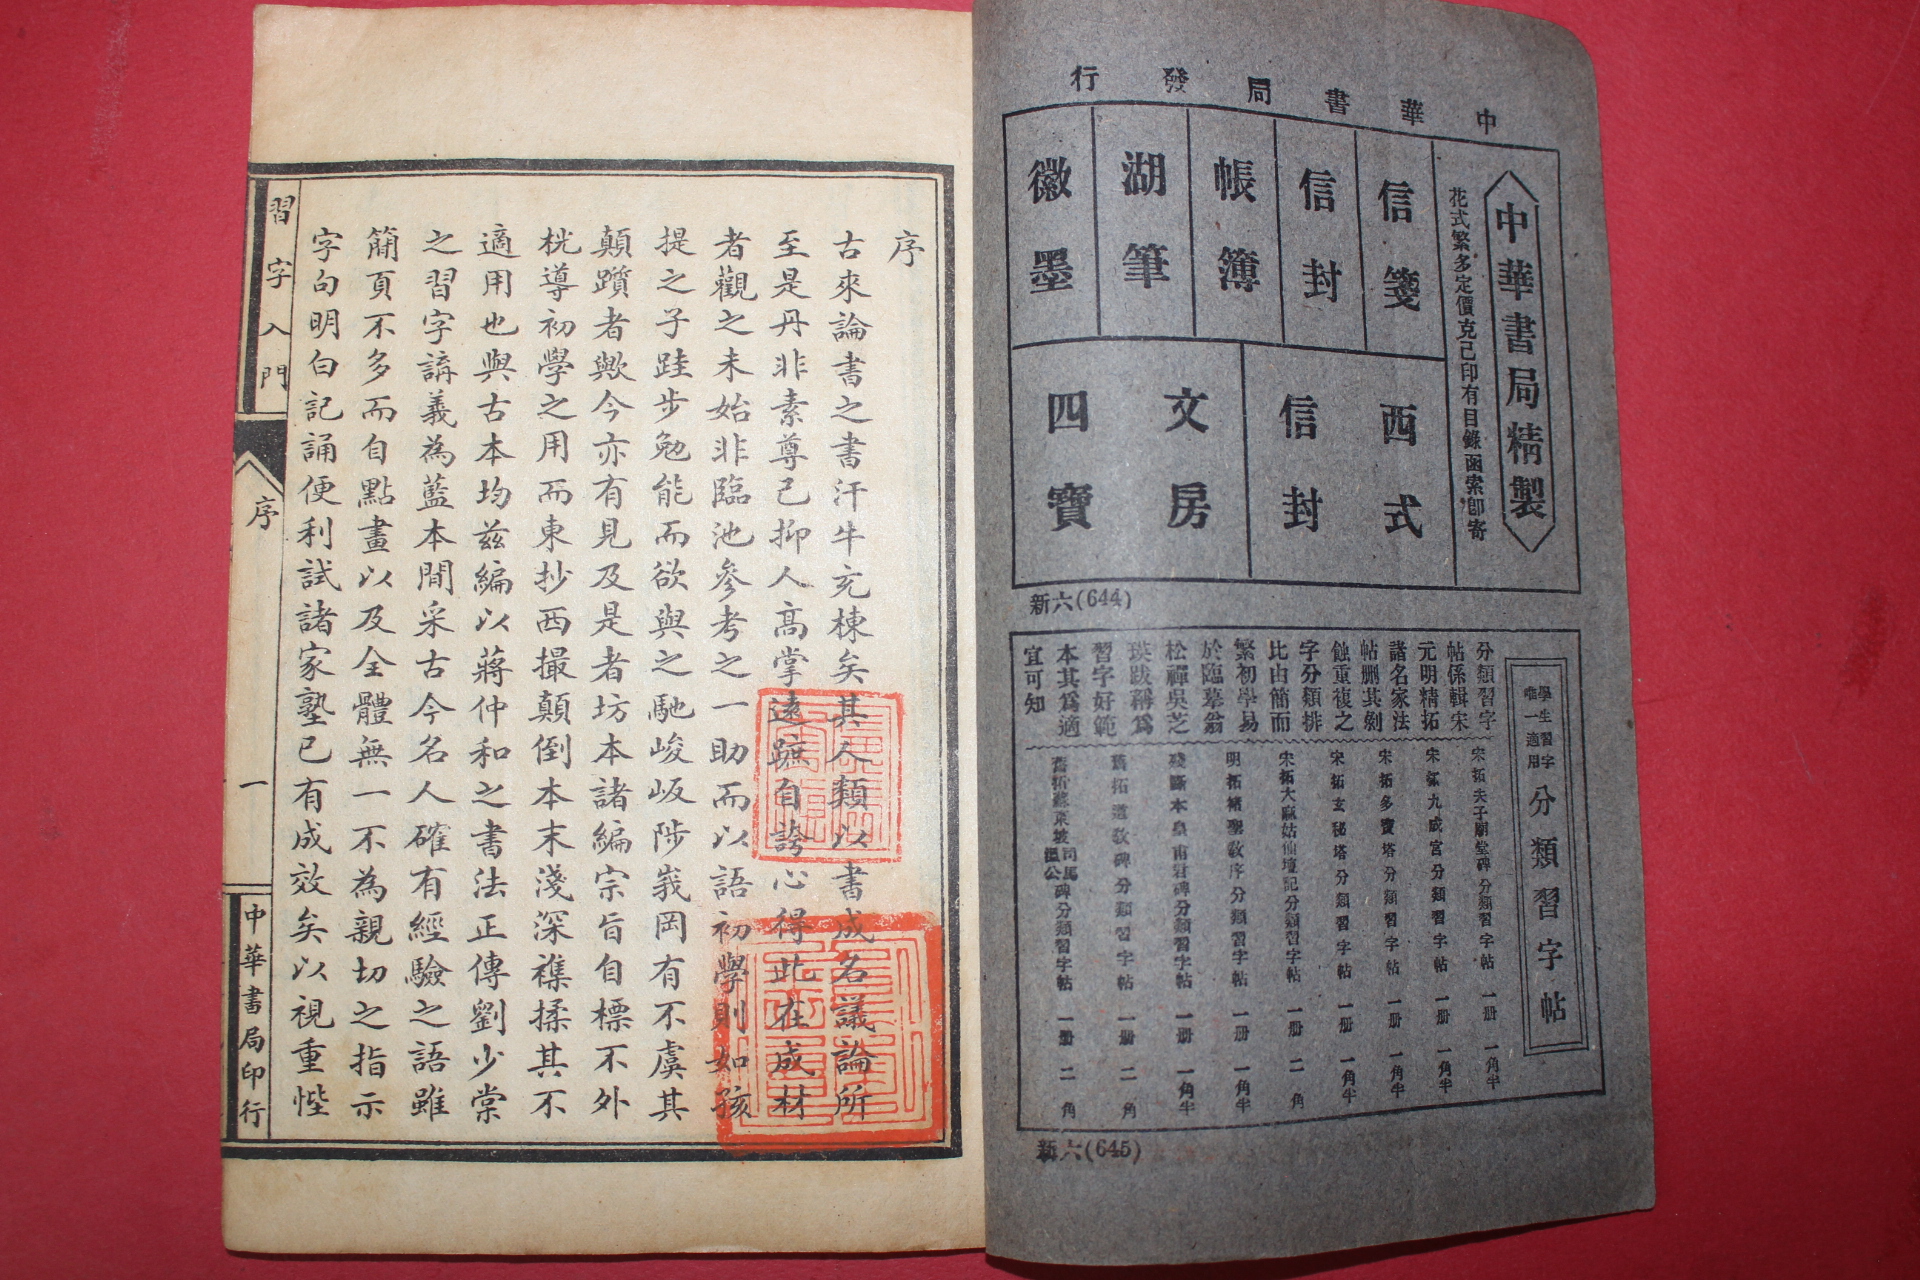 中華書局發行
中華書局精製
花式繁多定價克己印有目錄函索即寄
信箋
信封
帳簿
湖筆
徽墨
西式
信封
文房
四寶
新六(644)
學生習字
唯一適用
分類習字帖
分類習字
帖係輯宋
元明精拓
諸名家法
帖删其剝
蝕重複之
字分類排
比由簡而
繁初學易
於臨摹翁
松禪吳芝
瑛跋稱爲
習字好範
本其爲適
宜可知
宋拓夫子廟堂碑分類習字帖 一册 一角半
宋拓九成宮分類習字帖 一册 一角半
宋拓多寶塔分類習字帖 一册 一角半
宋拓玄秘塔分類習字帖 一册 一角半
宋拓大麻姑仙壇記分類習字帖 一册 二角
明拓褚聖敎序分類習字帖 一册 一角半
殘斷本皇甫君碑分類習字帖 一册 一角半
舊拓道敎碑分類習字帖 一册 二角
舊拓蘇東坡司馬溫公碑分類習字帖 一册 二角
新六(645)
序
古來論書之書汗牛充棟矣其人類以書成名議論所
至是丹非素尊己抑人高掌遠蹠自誇心得此在成材
者觀之未始非臨池參考之一助而以語初學則如孩
提之子跬步勉能而欲與之馳峻岅陟峩岡有不虞其
顛躓者歟今亦有見及是者坊本諸編宗旨自標不外
桄導初學之用而東抄西撮顛倒本末淺深襍揉其不
適用也與古本均玆編以蔣仲和之書法正傳劉少棠
之習字講義為藍本間采古今名人確有經驗之語雖
簡頁不多而自點畫以及全體無一不為親切之指示
字句明白記誦便利試諸家塾已有成效矣以視重悂
習字入門
序
一
中華書局印行